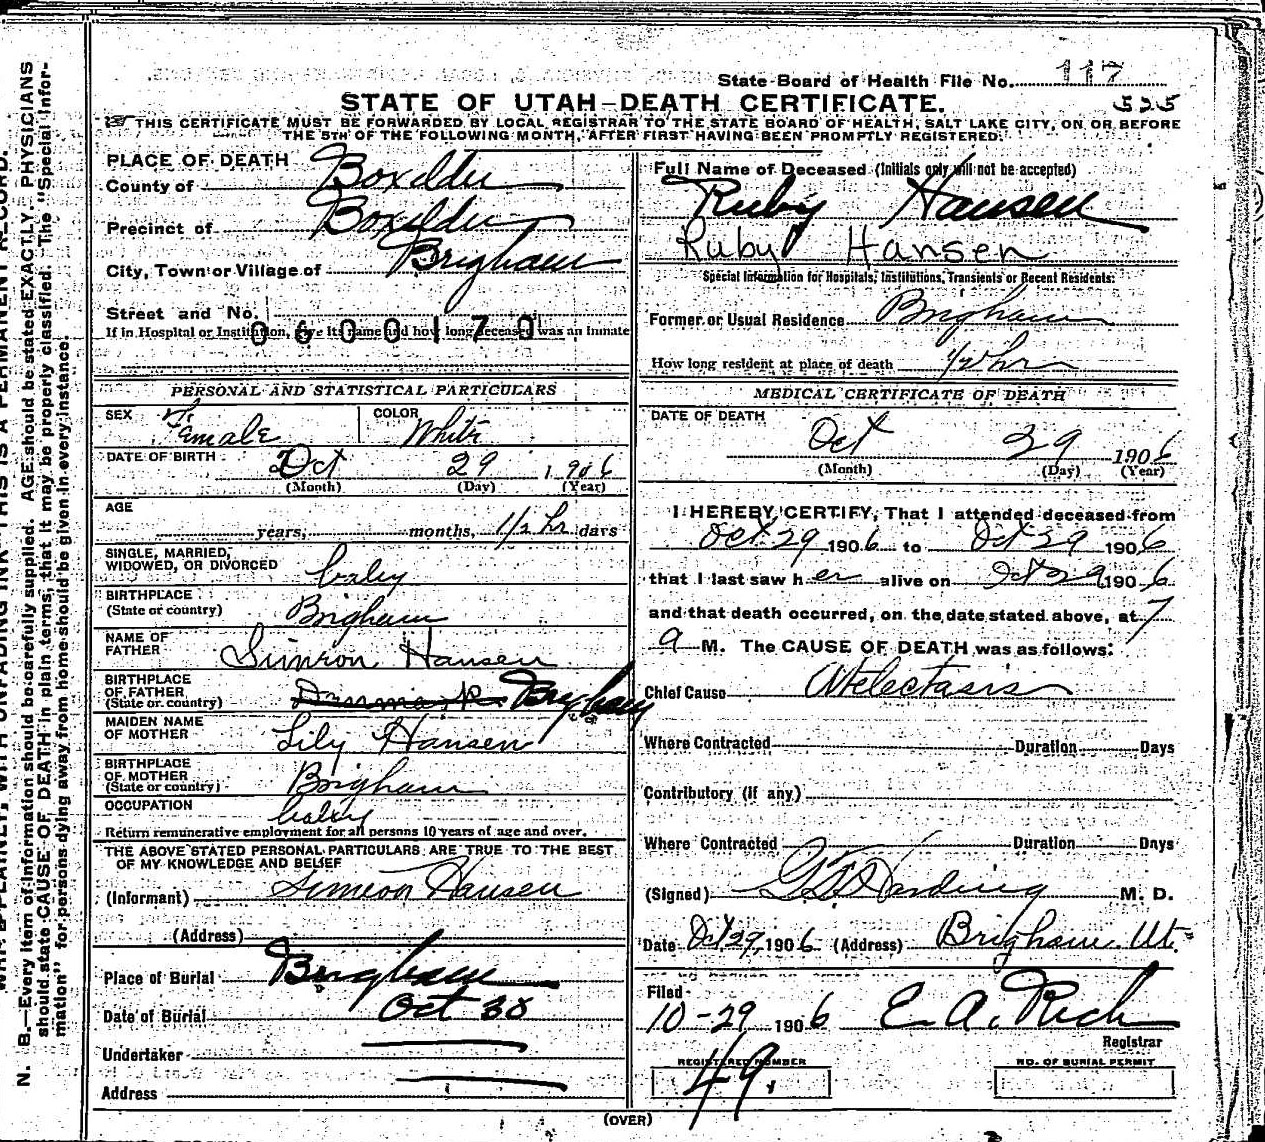 State Board of Health File No. 117
STATE OF UTAH—DEATH CERTIFICATE.
525
THIS CERTIFICATE MUST BE FORWARDED BY LOCAL REGISTRAR TO THE STATE BOARD OF HEALTH, SALT LAKE CITY, ON OR BEFORE
THE 5TH OF THE FOLLOWING MONTH, AFTER FIRST HAVING BEEN PROMPTLY REGISTERED.
PLACE OF DEATH
County of Boxelder
Precinct of Boxelder
City, Town or Village of Brigham
Street and No.
If in Hospital or Institution, give its name and how long deceased was an inmate
0600170
PERSONAL AND STATISTICAL PARTICULARS
SEX Female COLOR White
DATE OF BIRTH Oct 29 1906
(Month) (Day) (Year)
AGE
years, months, 1/2 hr days
SINGLE, MARRIED,
WIDOWED, OR DIVORCED baby
BIRTHPLACE
(State or country) Brigham
NAME OF
FATHER Simeon Hansen
BIRTHPLACE
OF FATHER
(State or country) Denmark Brigham
MAIDEN NAME
OF MOTHER Lily Hansen
BIRTHPLACE
OF MOTHER
(State or country) Brigham
OCCUPATION baby
Return remunerative employment for all persons 10 years of age and over.
THE ABOVE STATED PERSONAL PARTICULARS ARE TRUE TO THE BEST
OF MY KNOWLEDGE AND BELIEF
(Informant) Simeon Hansen
(Address)
Place of Burial Brigham
Date of Burial Oct 30
Undertaker
Address
Full Name of Deceased (Initials only will not be accepted)
Ruby Hansen
Ruby Hansen
Special Information for Hospitals, Institutions, Transients or Recent Residents:
Former or Usual Residence Brigham
How long resident at place of death 1/2 hr
MEDICAL CERTIFICATE OF DEATH
DATE OF DEATH
Oct 29 1906
(Month) (Day) (Year)
I HEREBY CERTIFY, That I attended deceased from
Oct 29 1906 to Oct 29 1906
that I last saw her alive on Oct 29 1906
and that death occurred, on the date stated above, at 7
a M. The CAUSE OF DEATH was as follows:
Chief Cause Atelectasis
Where Contracted Duration Days
Contributory (if any)
Where Contracted Duration Days
(Signed) Harding M. D.
Date Oct 29 1906 (Address) Brigham Ut.
Filed
10-29 1906 E. A. Rich
Registrar
REGISTERED NUMBER NO. OF BURIAL PERMIT
49
(OVER)
N. B.—Every item of information should be carefully supplied. AGE should be stated EXACTLY. PHYSICIANS
should state CAUSE OF DEATH in plain terms, that it may be properly classified. The "Special Infor-
mation" for persons dying away from home should be given in every instance.